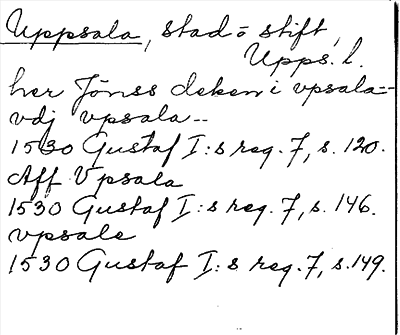 Uppsala, stad o stift,
Upps. l.
her Jönss deken i vpsala--
vdj vpsala--
1530 Gustaf I:s reg. 7, s. 120.
Aff Vpsala
1530 Gustaf I:s reg. 7, s. 146.
vpsale
1530 Gustaf I:s reg. 7, s. 149.